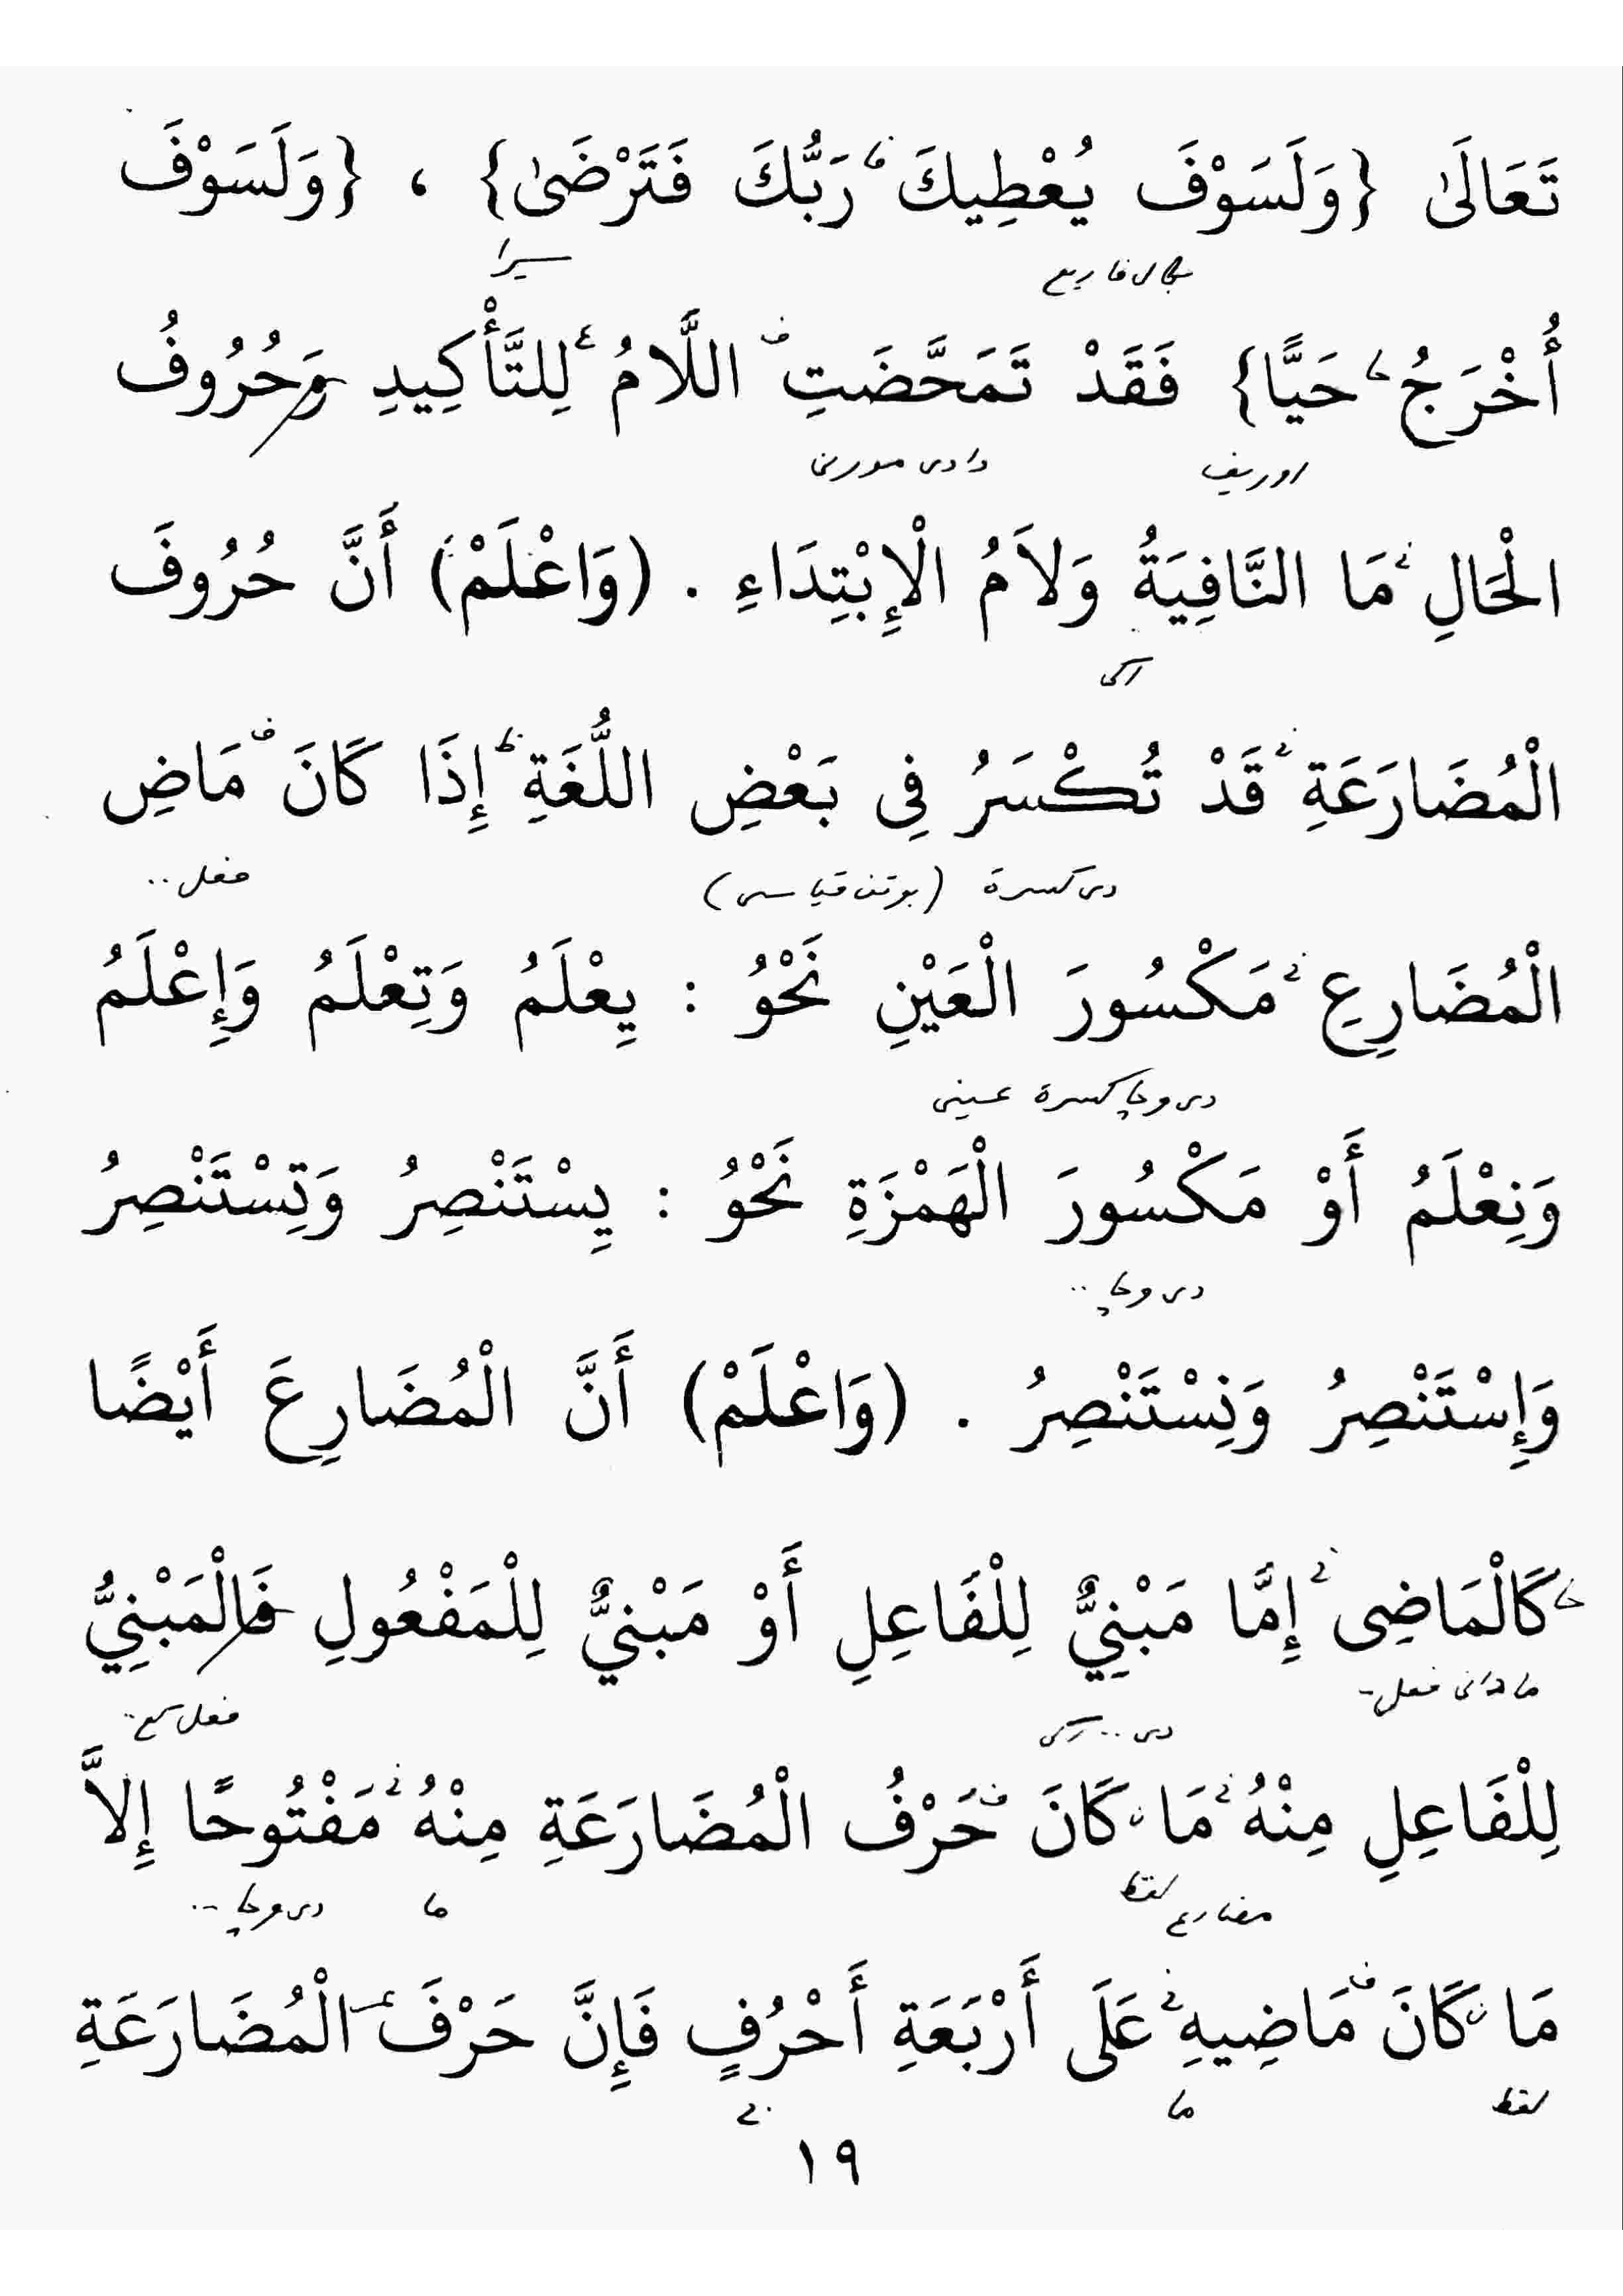 تَعَالَىٰ {وَلَسَوْفَ يُعْطِيكَ رَبُّكَ فَتَرْضَىٰ} ، {وَلَسَوْفَ
سيرا
أُخْرَجُ حَيًّا} فَقَدْ تَمَحَّضَتِ اللَّامُ لِلتَّأْكِيدِ وَحُرُوفُ
اوريف دادى مورنى
الْحَالِ مَا النَّافِيَةُ وَلاَمُ الْإِبْتِدَاءِ . (وَاعْلَمْ) أَنَّ حُرُوفَ
الْمُضَارَعَةِ قَدْ تُكْسَرُ فِى بَعْضِ اللُّغَةِ إِذَا كَانَ مَاضِ
دى كسرة فعل..
الْمُضَارِعِ مَكْسُورَ الْعَيْنِ نَحْوُ : يِعْلَمُ وَتِعْلَمُ وَإِعْلَمُ
كسرة عينى
وَنِعْلَمُ أَوْ مَكْسُورَ الْهَمْزَةِ نَحْوُ : يِسْتَنْصِرُ وَتِسْتَنْصِرُ
وَإِسْتَنْصِرُ وَنِسْتَنْصِرُ . (وَاعْلَمْ) أَنَّ الْمُضَارِعَ أَيْضًا
كَالْمَاضِى إِمَّا مَبْنِيٌّ لِلْفَاعِلِ أَوْ مَبْنِيٌّ لِلْمَفْعُولِ فَالْمَبْنِيُّ
فعل فعل
لِلْفَاعِلِ مِنْهُ مَا كَانَ حَرْفُ الْمُضَارَعَةِ مِنْهُ مَفْتُوحًا إِلاَّ
مضارع لفظ ما
مَا كَانَ مَاضِيهِ عَلَى أَرْبَعَةِ أَحْرُفٍ فَإِنَّ حَرْفَ الْمُضَارَعَةِ
لفظ ما
١٩